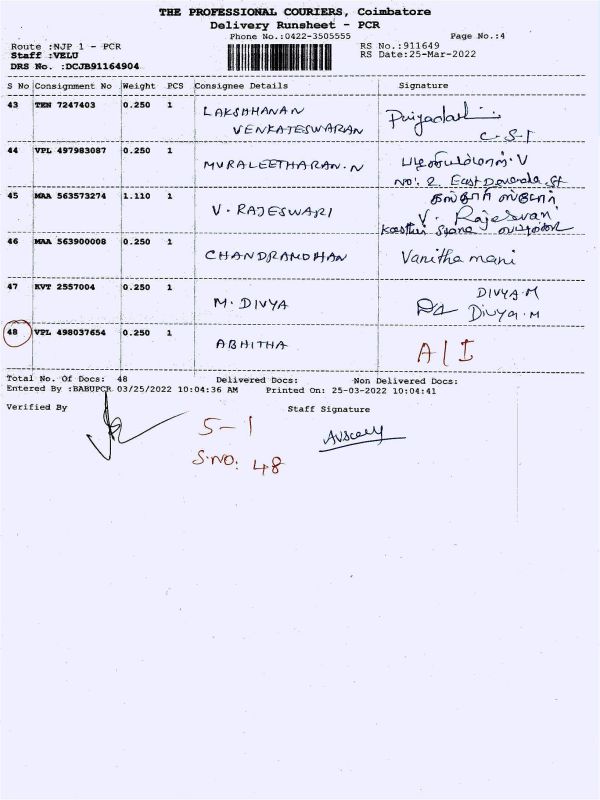 THE PROFESSIONAL COURIERS, Coimbatore
Delivery Runsheet - PCR
Phone No.:0422-3505555 Page No.:4
Route :NJP 1 - PCR RS No.:911649
Staff :VELU RS Date:25-Mar-2022
DRS No. :DCJB91164904
S No Consignment No Weight PCS Consignee Details Signature
43 TEN 7247403 0.250 1 LAKSHMANAN
VENKATESWARAN
C.S.I
44 VPL 497983087 0.250 1 MURALEETHARAN.N V
NO: 2. East Devenda St
45 MAA 563573274 1.110 1 V. RAJESWARI V. Rajeswari
46 MAA 563900008 0.250 1 CHANDRAMOHAN Vanitha mani
47 KVT 2557004 0.250 1 M. DIVYA DIVYA.M
Divya.M
48 VPL 498037654 0.250 1 ABHITHA A/I
Total No. Of Docs: 48 Delivered Docs: Non Delivered Docs:
Entered By :BABUPCR 03/25/2022 10:04:36 AM Printed On: 25-03-2022 10:04:41
Verified By Staff Signature
S-1
S.NO: 48